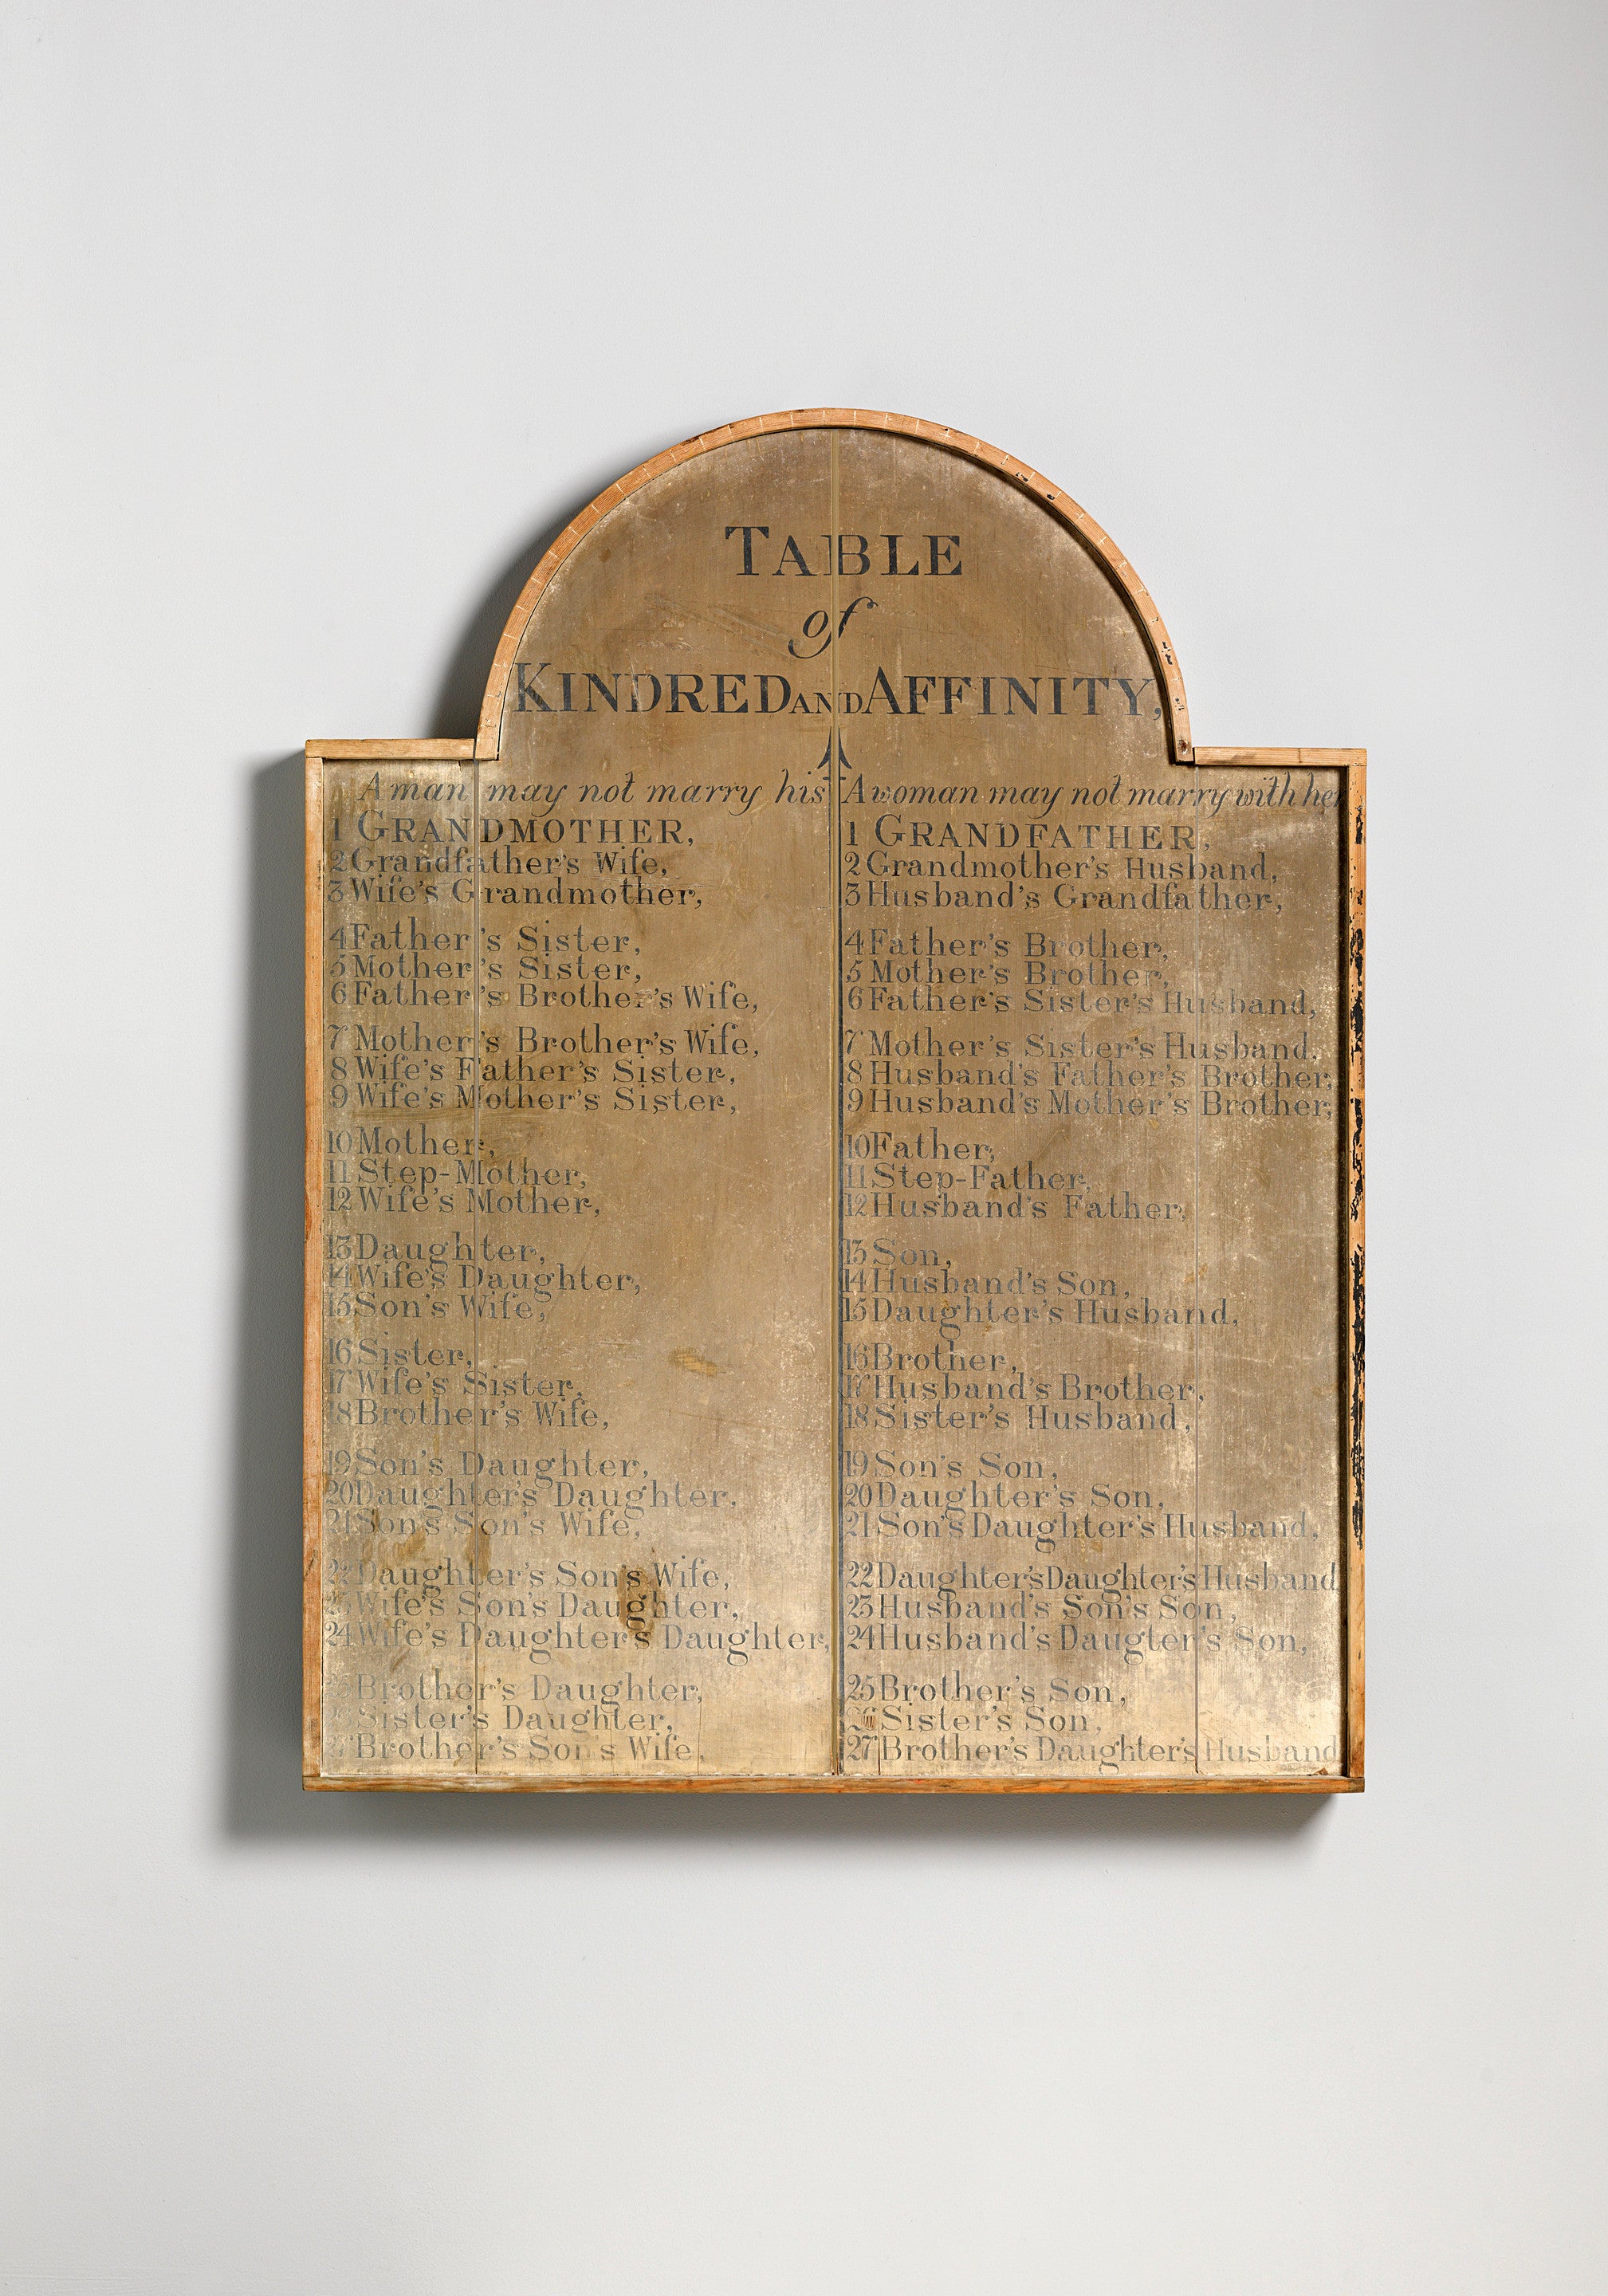 TABLE
of
KINDRED AND AFFINITY,
A man may not marry his
1 GRANDMOTHER,
2 Grandfather's Wife,
3 Wife's Grandmother,
4 Father's Sister,
5 Mother's Sister,
6 Father's Brother's Wife,
7 Mother's Brother's Wife,
8 Wife's Father's Sister,
9 Wife's Mother's Sister,
10 Mother,
11 Step-Mother,
12 Wife's Mother,
13 Daughter,
14 Wife's Daughter,
15 Son's Wife,
16 Sister,
17 Wife's Sister,
18 Brother's Wife,
19 Son's Daughter,
20 Daughter's Daughter,
21 Son's Son's Wife,
22 Daughter's Son's Wife,
23 Wife's Son's Daughter,
24 Wife's Daughter's Daughter,
25 Brother's Daughter,
26 Sister's Daughter,
27 Brother's Son's Wife,
A woman may not marry with her
1 GRANDFATHER,
2 Grandmother's Husband,
3 Husband's Grandfather,
4 Father's Brother,
5 Mother's Brother,
6 Father's Sister's Husband,
7 Mother's Sister's Husband,
8 Husband's Father's Brother,
9 Husband's Mother's Brother,
10 Father,
11 Step-Father,
12 Husband's Father,
13 Son,
14 Husband's Son,
15 Daughter's Husband,
16 Brother,
17 Husband's Brother,
18 Sister's Husband,
19 Son's Son,
20 Daughter's Son,
21 Son's Daughter's Husband,
22 Daughter's Daughter's Husband
23 Husband's Son's Son,
24 Husband's Daugter's Son,
25 Brother's Son,
26 Sister's Son,
27 Brother's Daughter's Husband